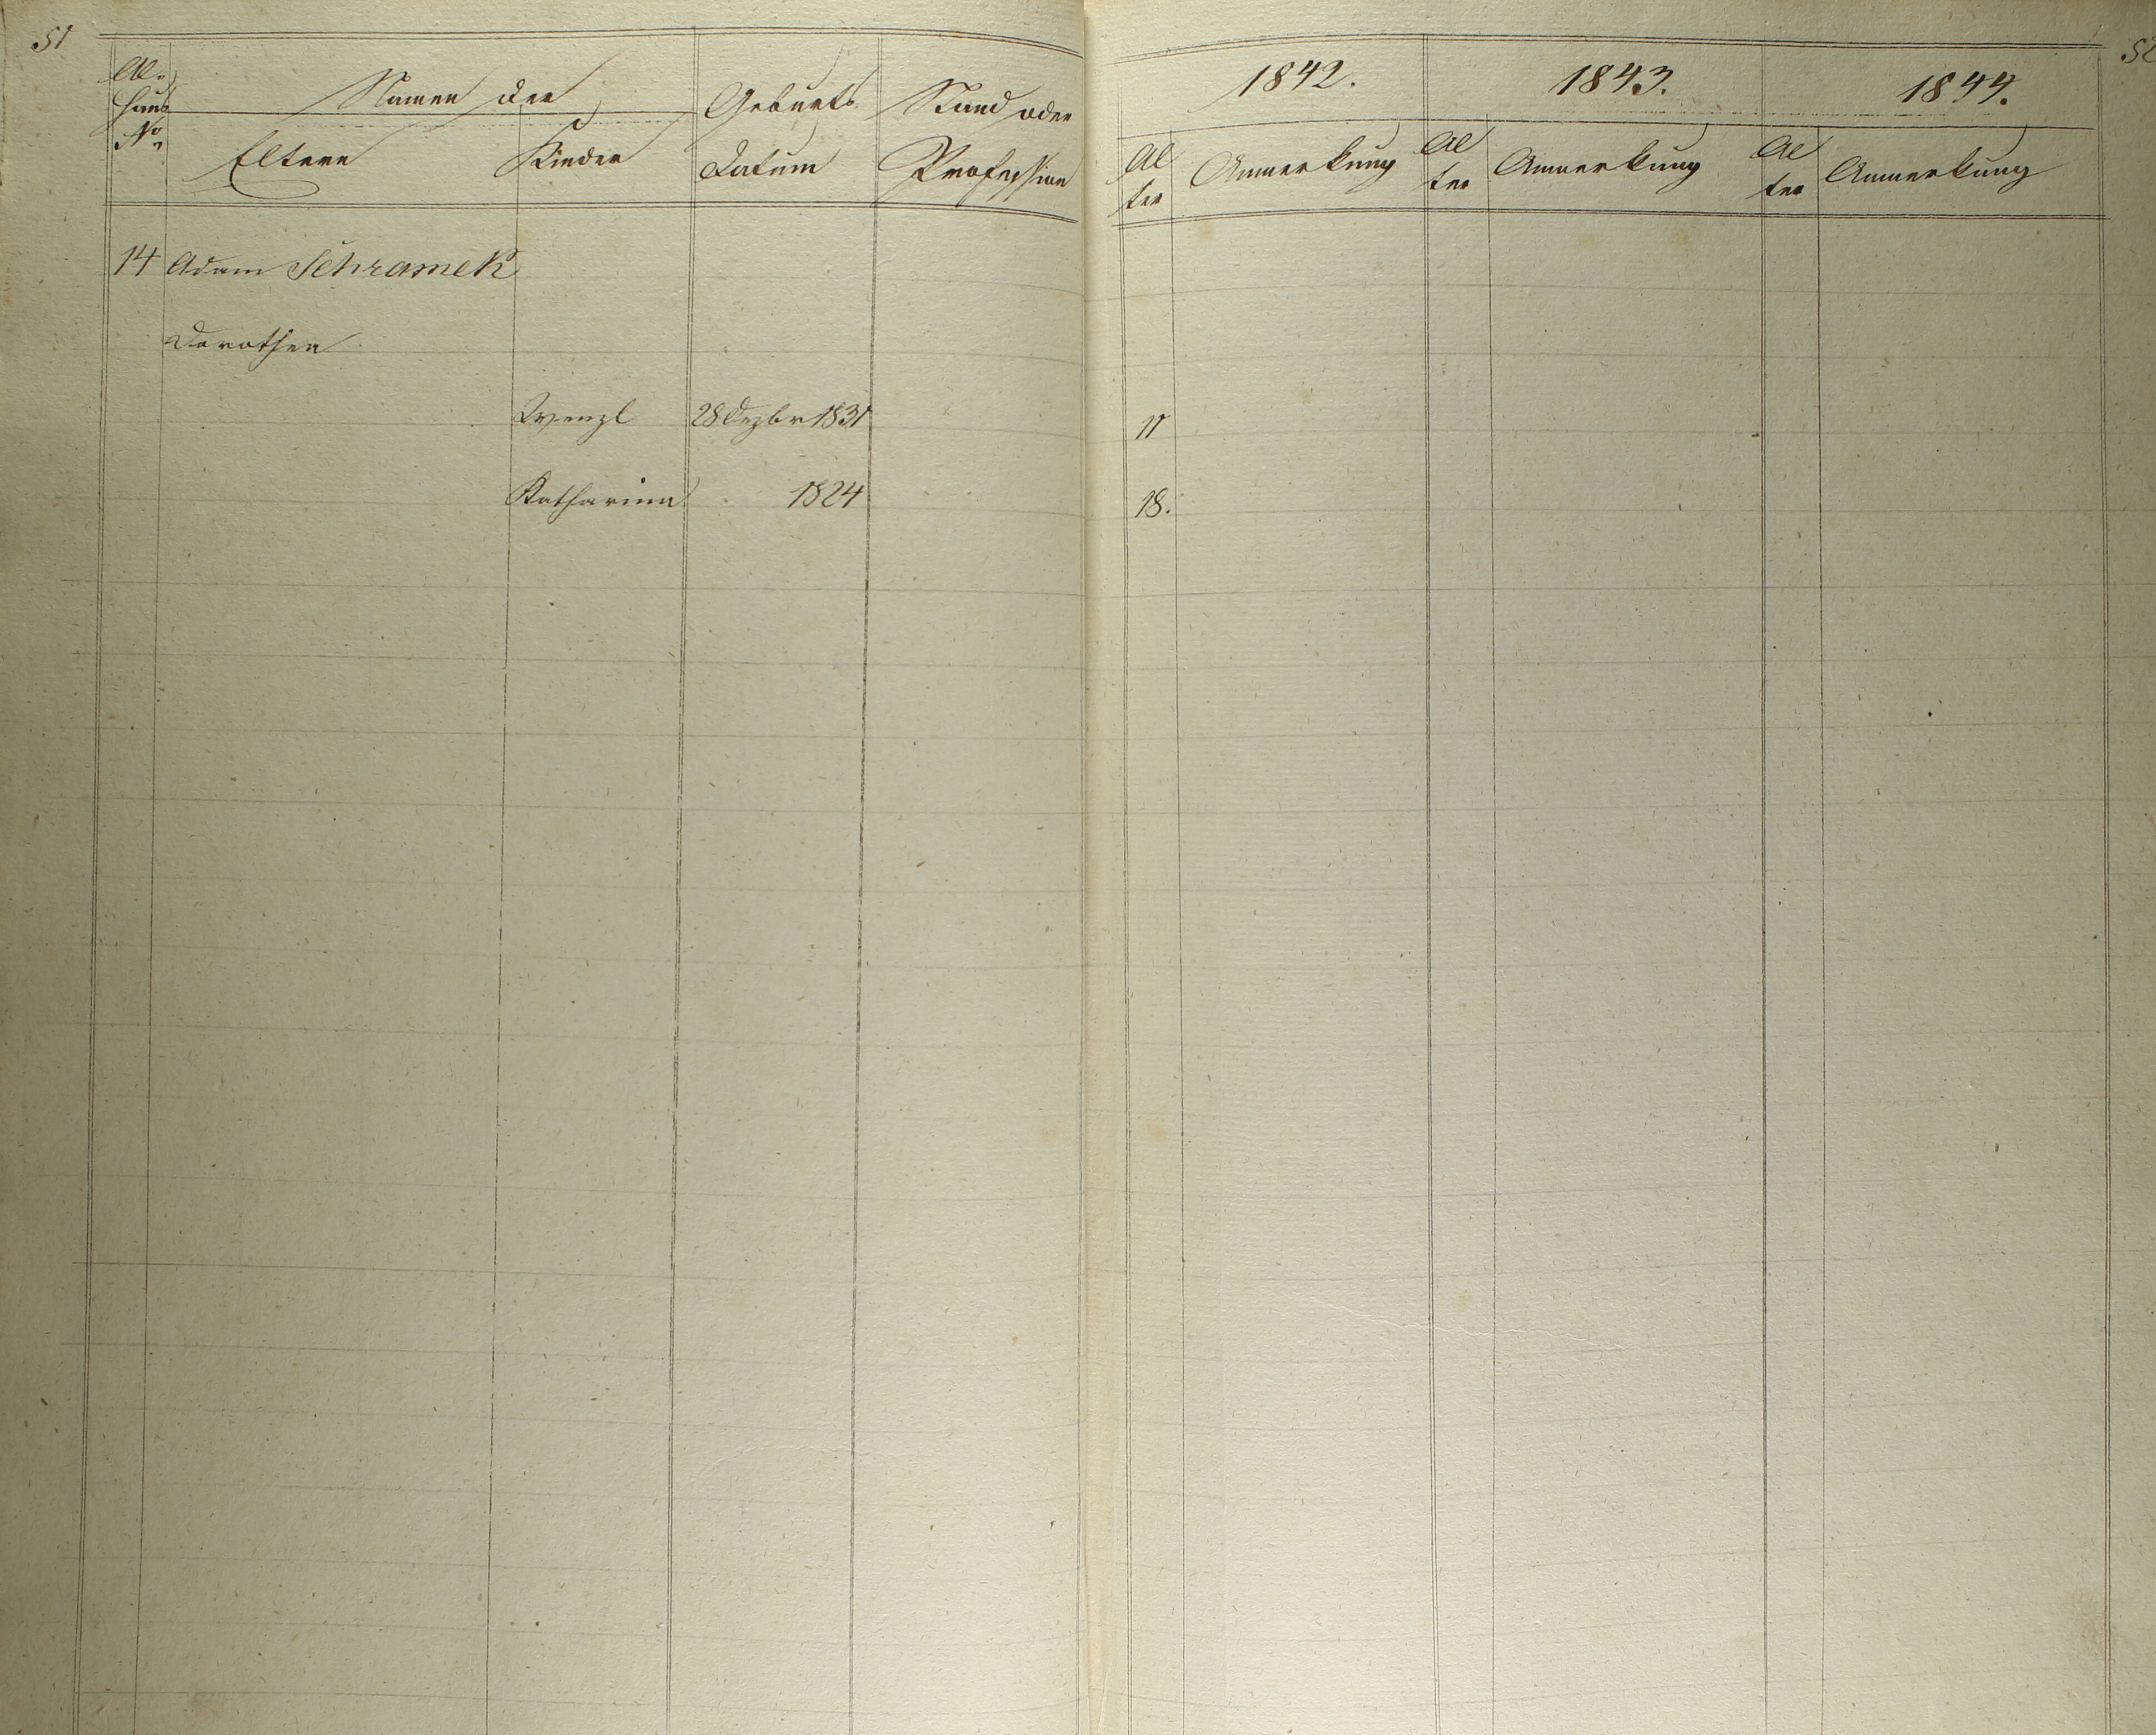 51
Haus
No
Namen der
Eltern
Kinder
Geburts
Datum
Stand oder
Profession
1842.
1843.
1844.
Al
ter
Anmerkung
Al
ter
Anmerkung
Al
ter
Anmerkung
14 Adam Schramek
Dorothea
Wenzl 28 Dezbr 1831 11
Katharina 1824 18.